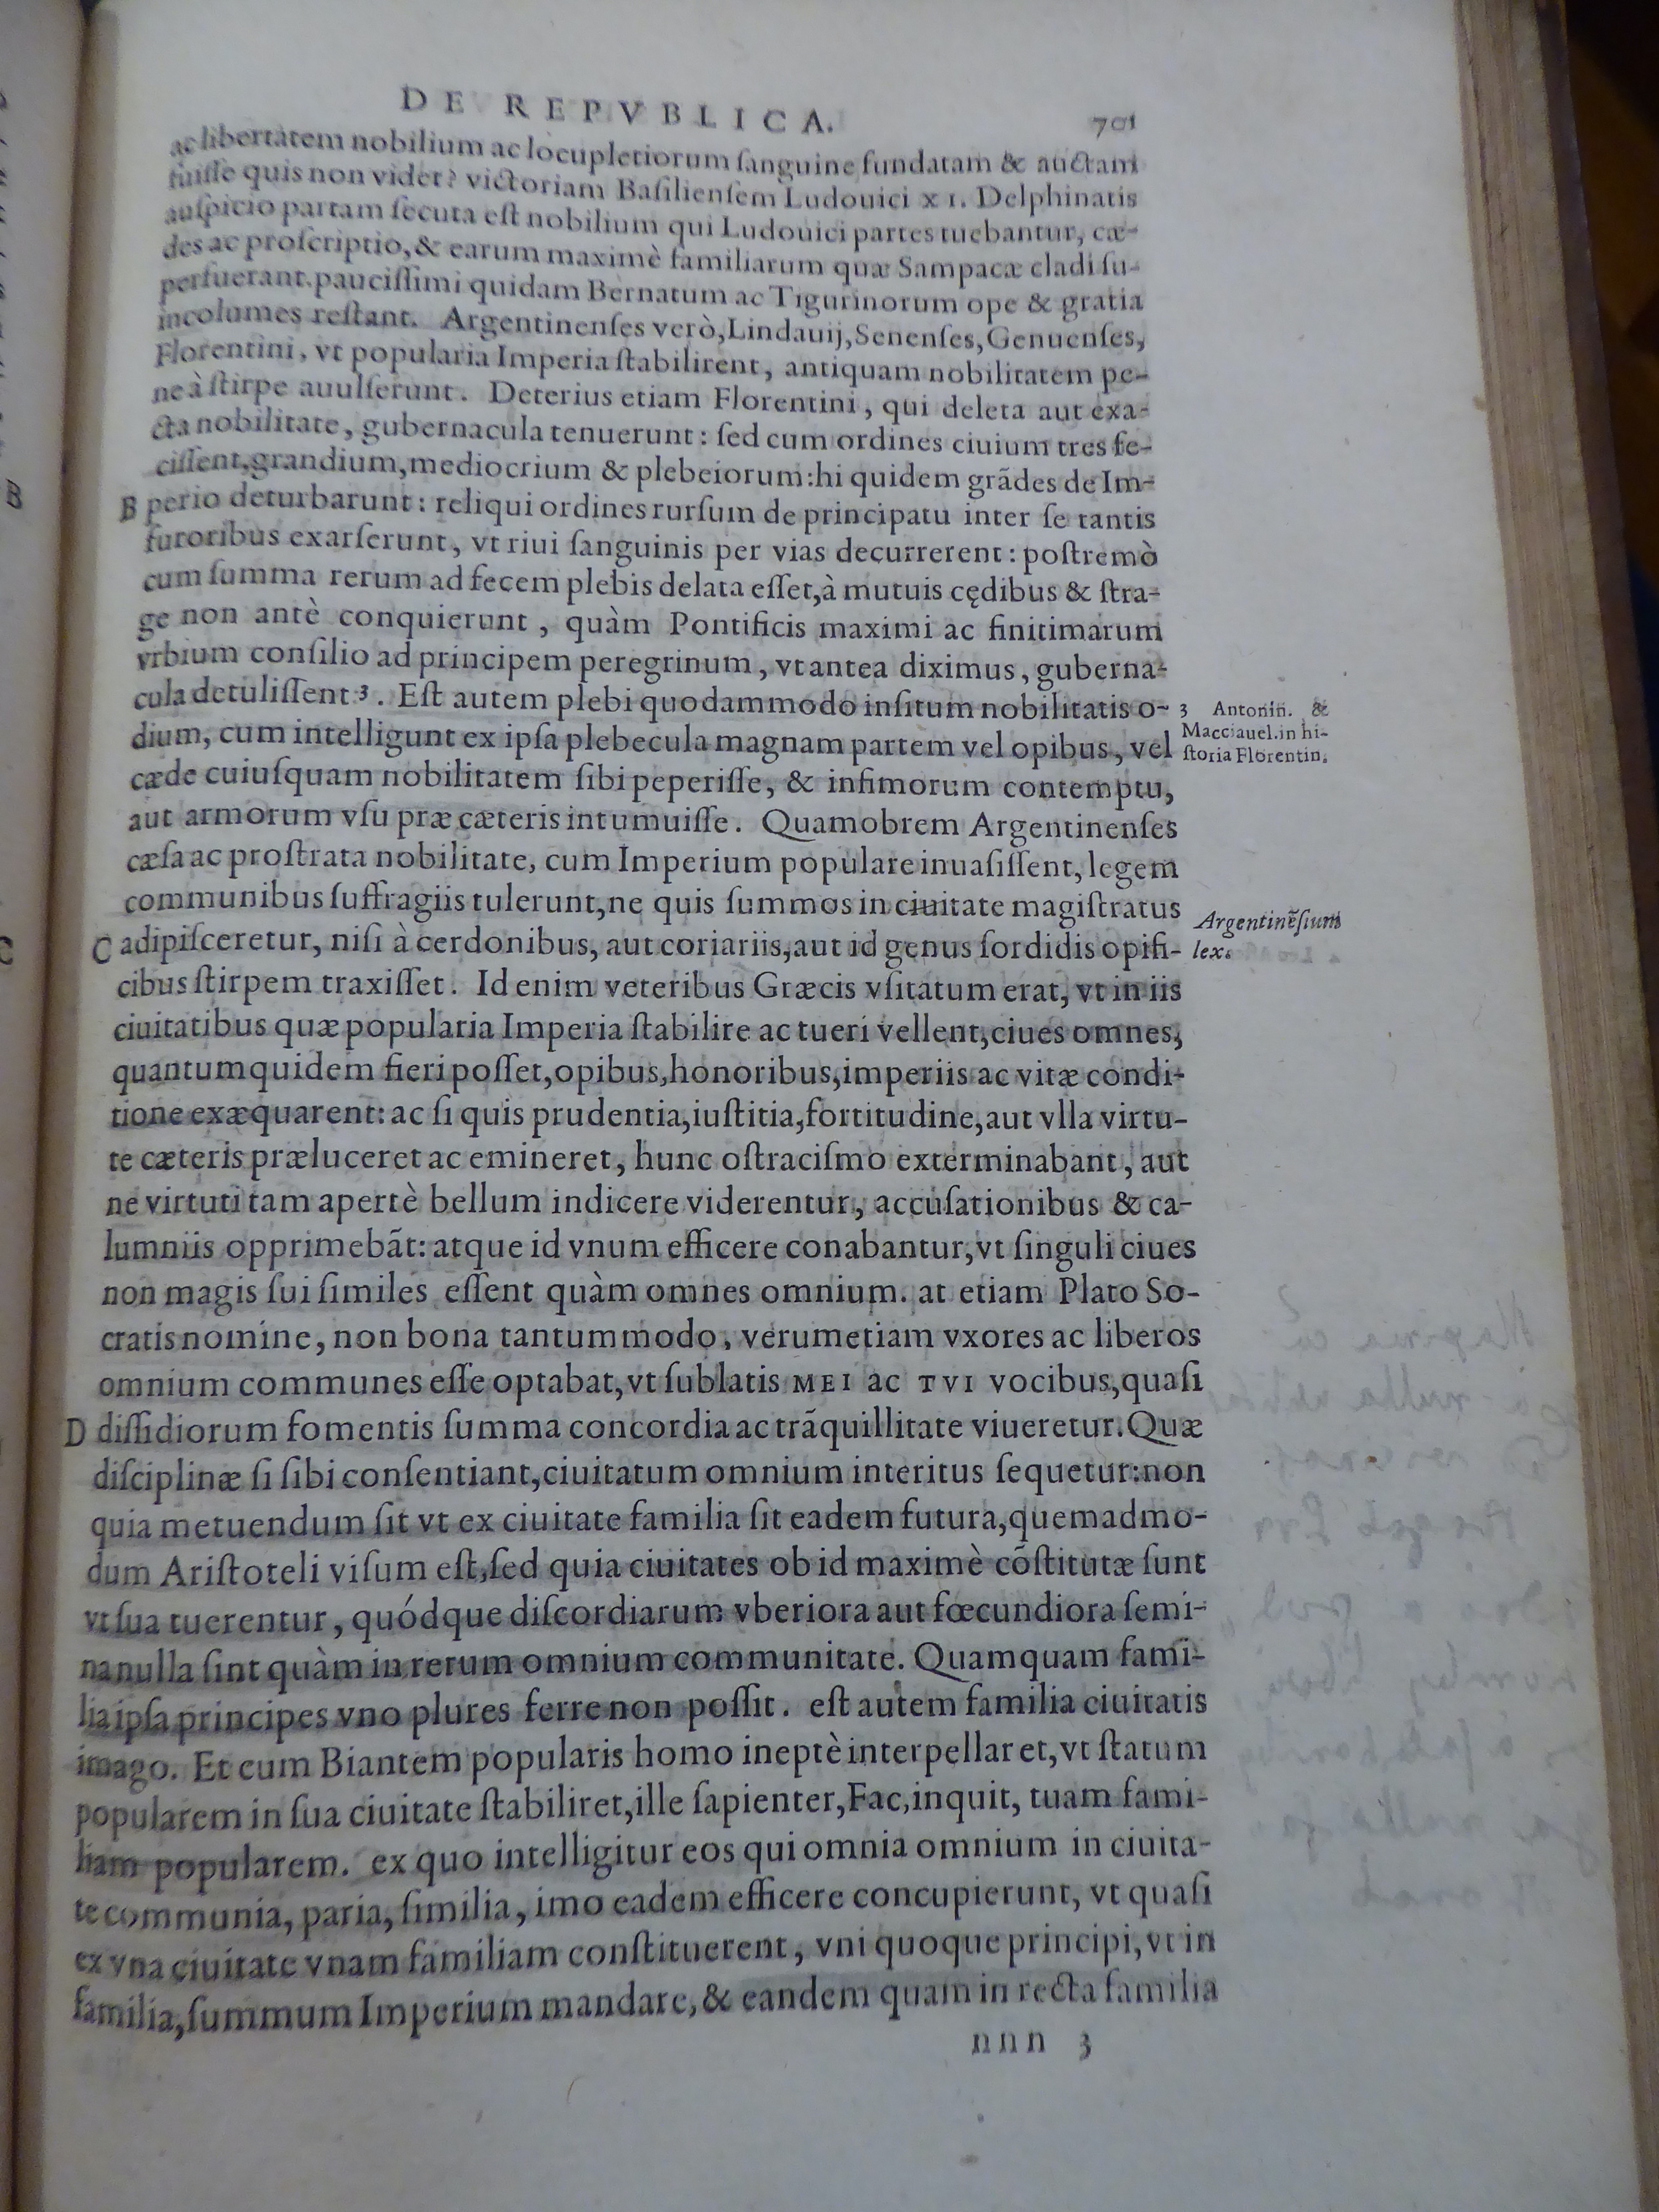 DE REPVBLICA. 701
ac libertatem nobilium ac locupletiorum ſanguine fundatam & auctam
fuiſſe quis non videt? victoriam Baſilienſem Ludouici XI. Delphinatis
auſpicio partam ſecuta eſt nobilium qui Ludouici partes tuebantur, cæ-
des ac proſcriptio, & earum maximè familiarum quæ Sampacæ cladi ſu-
perfuerant. pauciſſimi quidam Bernatum ac Tigurinorum ope & gratia
incolumes reſtant. Argentinenſes verò, Lindauij, Senenſes, Genuenſes,
Florentini, vt popularia Imperia ſtabilirent, antiquam nobilitatem pe-
ne à ſtirpe auulſerunt. Deterius etiam Florentini, qui deleta aut exa-
cta nobilitate, gubernacula tenuerunt: ſed cum ordines ciuium tres fe-
ciſſent, grandium, mediocrium & plebeiorum: hi quidem grãdes de Im-
B perio deturbarunt: reliqui ordines rurſum de principatu inter ſe tantis
furoribus exarſerunt, vt riui ſanguinis per vias decurrerent: poſtremò
cum ſumma rerum ad fecem plebis delata eſſet, à mutuis cędibus & ſtra-
ge non antè conquierunt, quàm Pontificis maximi ac finitimarum
vrbium conſilio ad principem peregrinum, vt antea diximus, guberna-
cula detuliſſent 3. Eſt autem plebi quodammodo inſitum nobilitatis o-
dium, cum intelligunt ex ipſa plebecula magnam partem vel opibus, vel
cæde cuiuſquam nobilitatem ſibi peperiſſe, & infimorum contemptu,
aut armorum vſu præ cæteris intumuiſſe. Quamobrem Argentinenſes
cæſa ac proſtrata nobilitate, cum Imperium populare inuaſiſſent, legem
communibus ſuffragiis tulerunt, ne quis ſummos in ciuitate magiſtratus
C adipiſceretur, niſi à cerdonibus, aut coriariis, aut id genus ſordidis opifi-
cibus ſtirpem traxiſſet. Id enim veteribus Græcis vſitatum erat, vt in iis
ciuitatibus quæ popularia Imperia ſtabilire ac tueri vellent, ciues omnes,
quantum quidem fieri poſſet, opibus, honoribus, imperiis ac vitæ condi-
tione exæquarent: ac ſi quis prudentia, iuſtitia, fortitudine, aut vlla virtu-
te cæteris præluceret ac emineret, hunc oſtraciſmo exterminabant, aut
ne virtuti tam apertè bellum indicere viderentur, accuſationibus & ca-
lumniis opprimebãt: atque id vnum efficere conabantur, vt ſinguli ciues
non magis ſui ſimiles eſſent quàm omnes omnium. at etiam Plato So-
cratis nomine, non bona tantummodo, verumetiam vxores ac liberos
omnium communes eſſe optabat, vt ſublatis MEI ac TVI vocibus, quaſi
D diſſidiorum fomentis ſumma concordia ac trãquillitate viueretur. Quæ
diſciplinæ ſi ſibi conſentiant, ciuitatum omnium interitus ſequetur: non
quia metuendum ſit vt ex ciuitate familia ſit eadem futura, quemadmo-
dum Ariſtoteli viſum eſt, ſed quia ciuitates ob id maximè cõſtitutæ ſunt
vt ſua tuerentur, quódque diſcordiarum vberiora aut fœcundiora ſemi-
na nulla ſint quàm in rerum omnium communitate. Quamquam fami-
lia ipſa principes vno plures ferre non poſſit. eſt autem familia ciuitatis
imago. Et cum Biantem popularis homo ineptè interpellaret, vt ſtatum
popularem in ſua ciuitate ſtabiliret, ille ſapienter, Fac, inquit, tuam fami-
liam popularem. ex quo intelligitur eos qui omnia omnium in ciuita-
te communia, paria, ſimilia, imo eadem efficere concupierunt, vt quaſi
ex vna ciuitate vnam familiam conſtituerent, vni quoque principi, vt in
familia, ſummum Imperium mandare, & eandem quam in recta familia
nnn 3
3 Antonin. &
Macciauel. in hi-
ſtoria Florentin.
Argentinẽſium
lex.
B
C